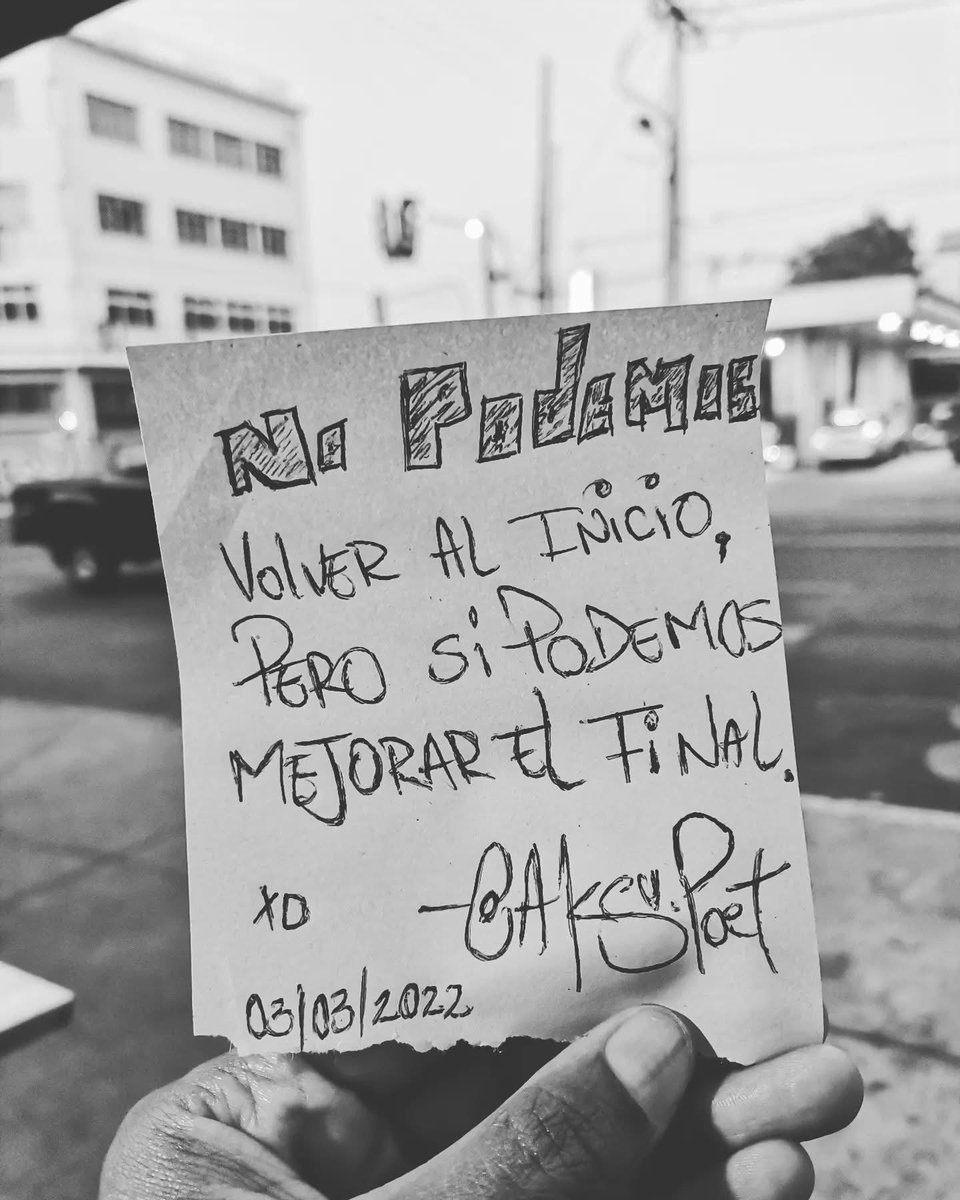 No PodeMos
VolVER AL INiCiO,
PERO Si PODEMOS
MEJORAR El FiNAL.
XD
03/03/2022